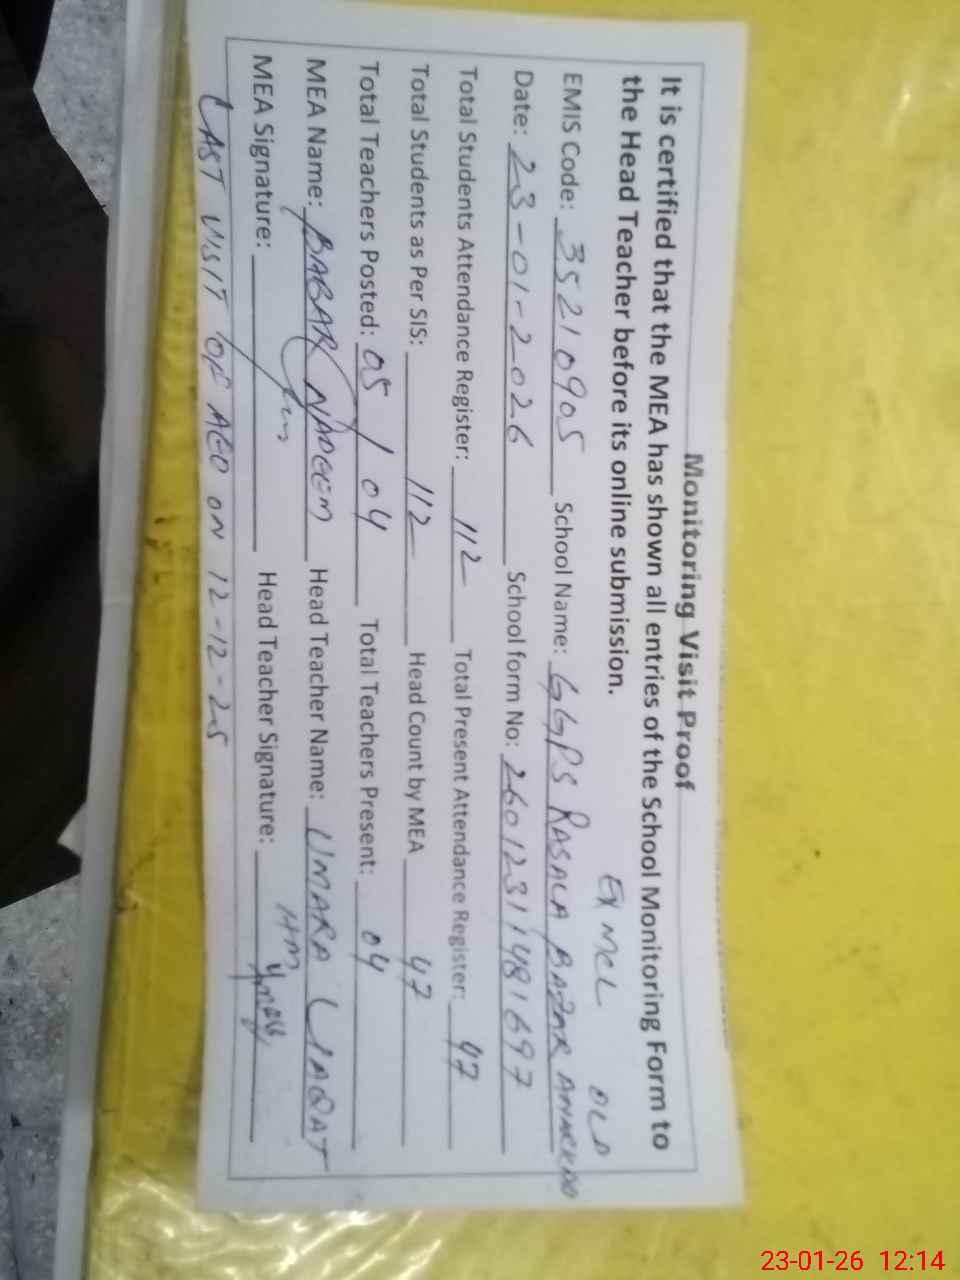 Monitoring Visit Proof
It is certified that the MEA has shown all entries of the School Monitoring Form to
the Head Teacher before its online submission.
EX MCL OLD
EMIS Code: 35210905 School Name: GGPS RASALA BAZAR ANARKALI
Date: 23-01-2026 School form No: 26012311481697
Total Students Attendance Register: 112 Total Present Attendance Register: 47
Total Students as Per SIS: 112 Head Count by MEA 47
Total Teachers Posted: 05 / 04 Total Teachers Present: 04
MEA Name: BABAR NADEEM Head Teacher Name: UMARA LIAQAT
MEA Signature: Head Teacher Signature: HM
LAST VISIT OF AEO ON 12-12-25
23-01-26 12:14